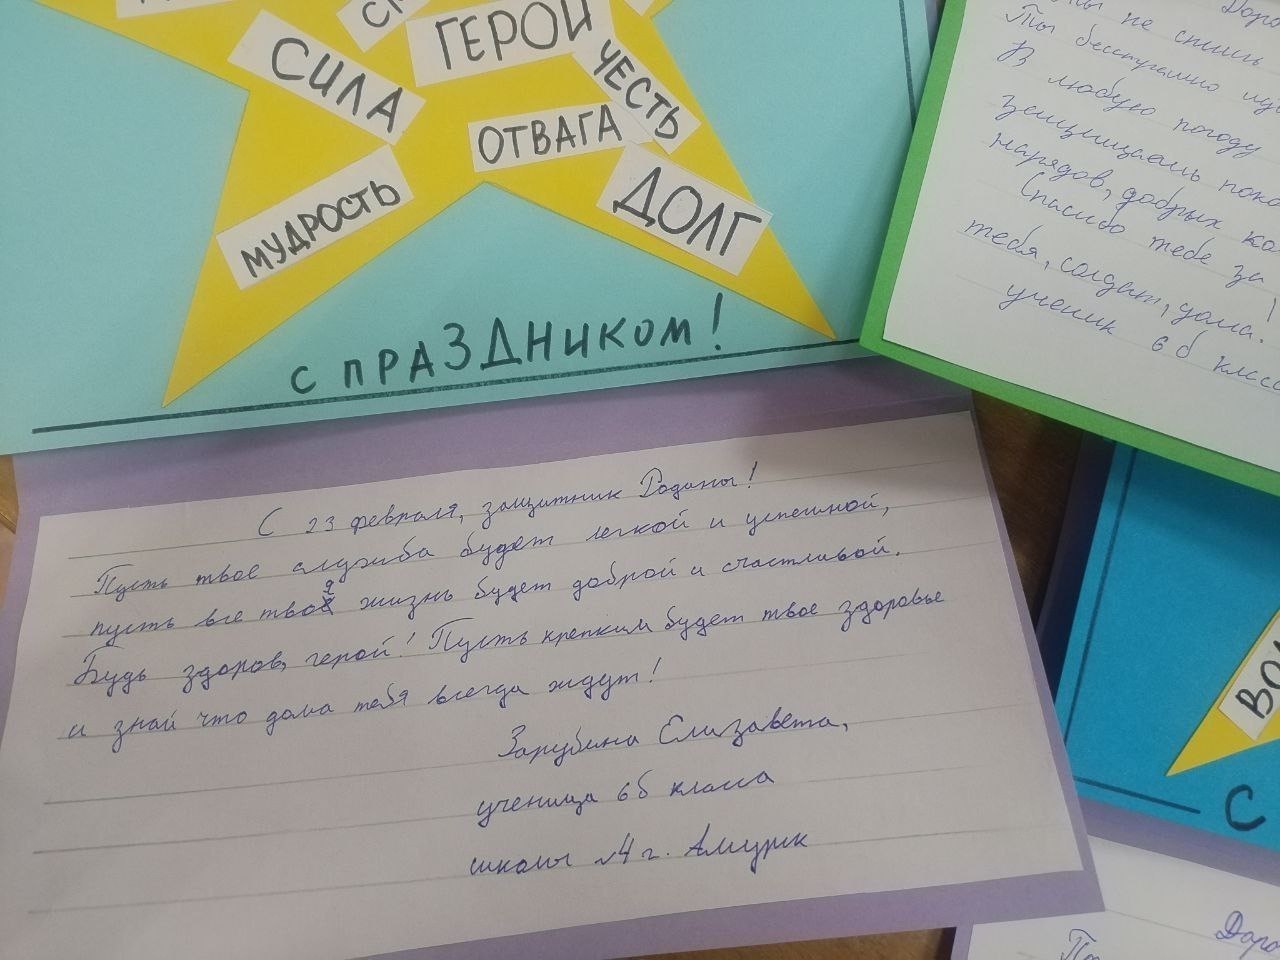 СИЛА
ГЕРОИ
ЧЕСТЬ
ОТВАГА
ДОЛГ
МУДРОСТЬ
С ПРАЗДНИКОМ!
ты не спишь
Ты бесшумно
В любую погоду
защищаешь
нарядов, добрых
Спасибо тебе за
тебя, солдат, дома.
ученик 6 б класса
С 23 февраля, защитник Родины!
Пусть твое служба будет легкой и успешной,
пусть все твоя жизнь будет доброй и счастливой.
Будь здоров, герой! Пусть крепким будет твое здоровье
и знай что дома тебя всегда ждут!
Зарубина Елизавета,
ученица 6б класса
школы №4 г. Амурск
С